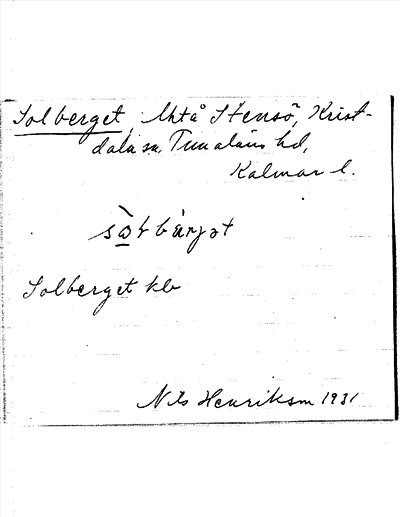 Solberget, Uhtå Stensö, Krist-
dala sn, Tunaläns hd,
Kalmar l.
Solberget kb
Nils Henriksson 1931